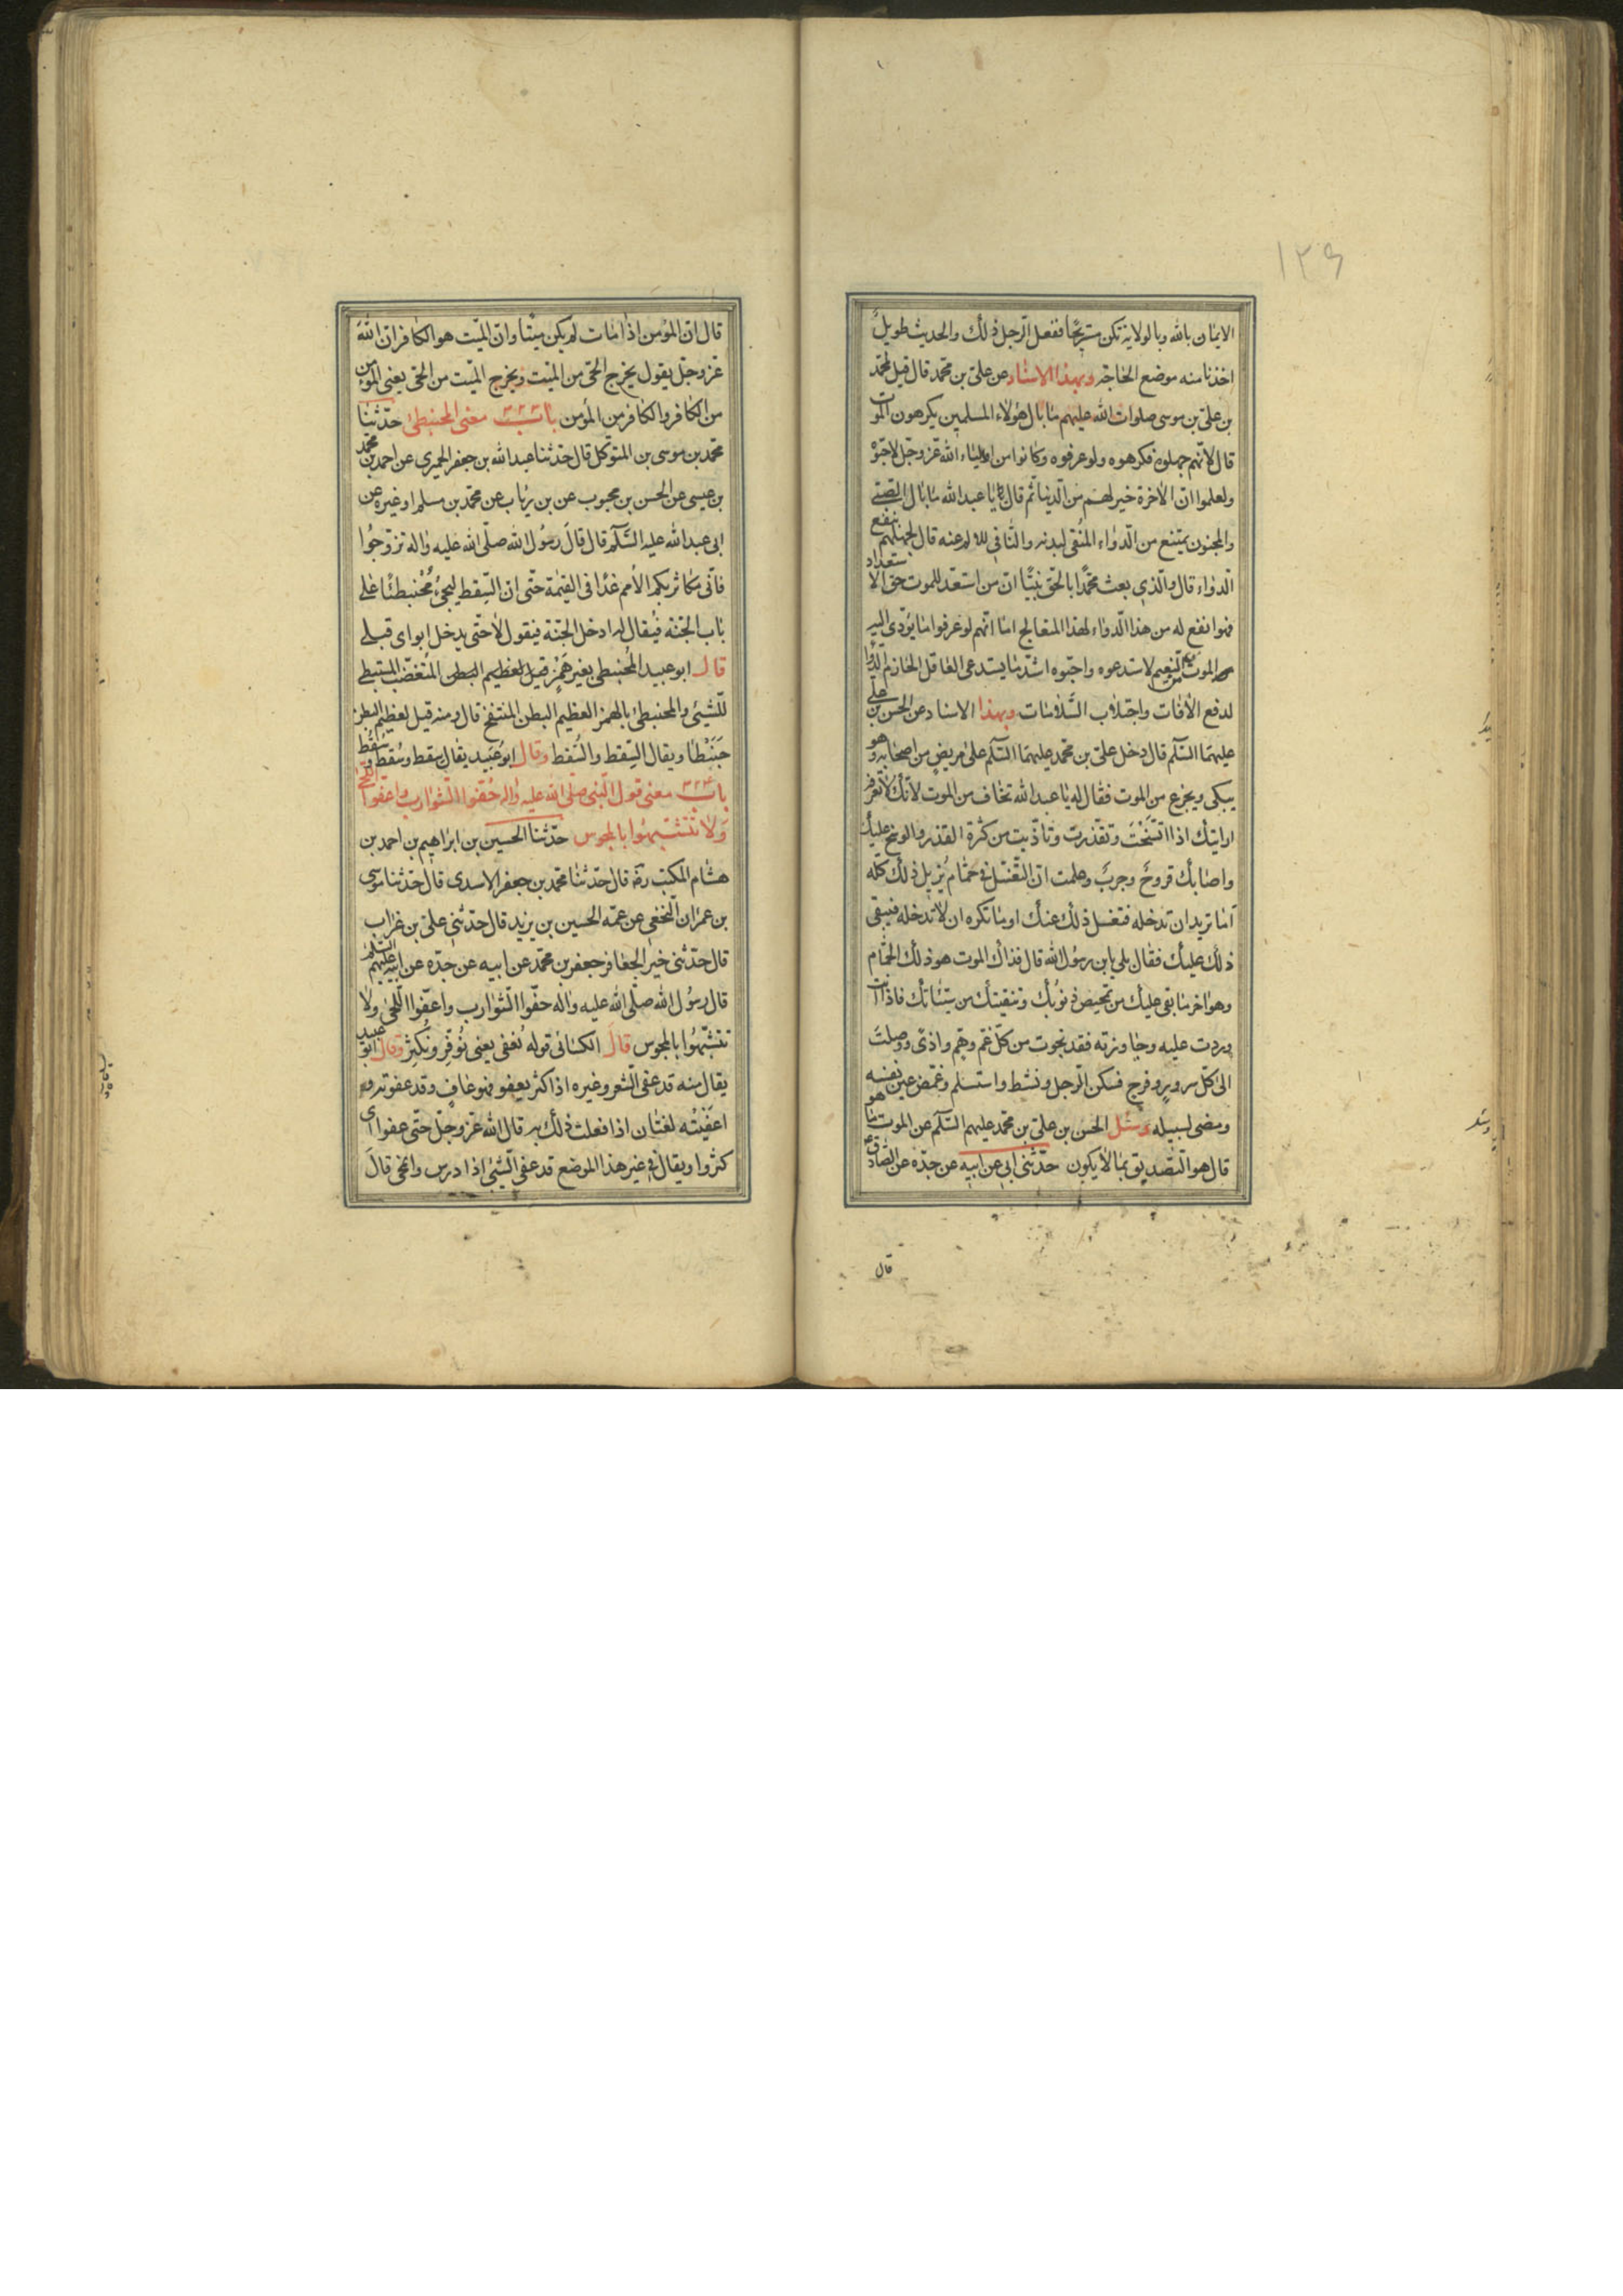 ١٣٦
الايمان بالله وبالولاية تكن مستريحا ففعل الرجل ذلك والحديث طويل
اخذنا منه موضع الحاجة وبهذا الاسناد عن علي بن محمد قال قيل لمحمد
بن علي بن موسى صلوات الله عليهم ما بال هؤلاء المسلمين يكرهون الموت
قال لانهم جهلوه فكرهوه ولو عرفوه وكانوا من اولياء الله عز وجل لاحبوه
ولعلموا ان الاخرة خير لهم من الدنيا ثم قال يا عبد الله ما بال الصبي
والمجنون يمتنع من الدواء المنقي لبدنه والنافي للالم عنه قال لجهلهم بنفع
الدواء قال والذي بعث محمدا بالحق نبيا ان من استعد للموت حق الاستعداد
فهو انفع له من هذا الدواء لهذا المتعالج اما انهم لو عرفوا ما يؤدي اليه
الموت من النعيم لاستدعوه واحبوه اشد ما يستدعي العاقل الحازم الدواء
لدفع الافات واجتلاب السلامات وبهذا الاسناد عن الحسن بن علي
عليهما السلم قال دخل علي بن محمد عليهما السلم على مريض من اصحابه وهو
يبكي ويجزع من الموت فقال له يا عبد الله تخاف من الموت لانك لا تعرفه
ارايتك اذا اتسخت وتقذرت وتاذيت من كثرة القذر والوسخ عليك
واصابك قروح وجرب وعلمت ان الغسل في حمام يزيل ذلك كله
اما تريد ان تدخله فتغسل ذلك عنك او ما تكره ان لا تدخله فيبقى
ذلك عليك فقال بلى يا بن رسول الله قال فذاك الموت هو ذلك الحمام
وهو اخر ما بقي عليك من تمحيص ذنوبك وتنقيتك من سيئاتك فاذا انت
وردت عليه وجاوزته فقد نجوت من كل غم وهم واذى ووصلت
الى كل سرور وفرح فسكن الرجل ونشط واستسلم وغمض عين نفسه
ومضى لسبيله وسئل الحسن بن علي بن محمد عليهم السلم عن الموت ما هو
قال هو التصديق بما لا يكون حدثني ابي عن ابيه عن جده عن الصادق ع
قال
قال ان المؤمن اذا مات لم يكن ميتا وان الميت هو الكافر ان الله
عز وجل يقول يخرج الحي من الميت ويخرج الميت من الحي يعني المؤمن
من الكافر والكافر من المؤمن باب معنى المحبنطئ حدثنا
محمد بن موسى بن المتوكل قال حدثنا عبد الله بن جعفر الحميري عن احمد بن محمد
بن عيسى عن الحسن بن محبوب عن بن رئاب عن محمد بن مسلم او غيره عن
ابي عبد الله عليه السلم قال قال رسول الله صلى الله عليه واله تزوجوا
فاني مكاثر بكم الامم غدا في القيمة حتى ان السقط ليجئ محبنطئا على
باب الجنة فيقال له ادخل الجنة فيقول لا حتى يدخل ابواي قبلي
قال ابو عبيد المحبنطي بغير همز قيل لعظيم البطن المتغضب المستبطي
للشيئ والمحبنطئ بالهمز العظيم البطن المنتفخ قال ومنه قيل لعظيم البطن
حبنطا ويقال السقط والسقط وقال ابو عبيد يقال سقط وسقط وسقط
باب معنى قول النبي صلى الله عليه واله حفوا الشوارب واعفوا اللحى
ولا تتشبهوا بالمجوس حدثنا الحسين بن ابراهيم بن احمد بن
هشام المكتب رة قال حدثنا محمد بن جعفر الاسدي قال حدثنا موسى
بن عمران النخعي عن عمه الحسين بن يزيد قال حدثني علي بن غراب
قال حدثني خير الجعافر جعفر بن محمد عن ابيه عن جده عن ابيه عليهم السلم
قال رسول الله صلى الله عليه واله حفوا الشوارب واعفوا اللحى ولا
تتشبهوا بالمجوس قال الكسائي قوله تعفى يعني توفر وتكثر وقال ابو عبيد
يقال منه قد عفى الشعر وغيره اذا كثر يعفو فهو عاف وقد عفوته و
اعفيته لغتان اذا فعلت ذلك به قال الله عز وجل حتى عفوا اى
كثروا ويقال في غير هذا الموضع قد عفى الشيئ اذا درس وانمحى قال